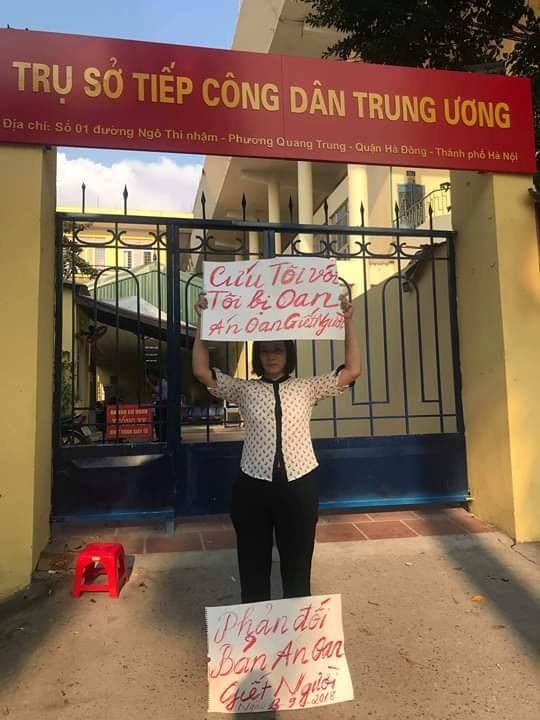 TRỤ SỞ TIẾP CÔNG DÂN TRUNG ƯƠNG
Địa chỉ: Số 01 đường Ngô Thì nhậm - Phường Quang Trung - Quận Hà Đông - Thành phố Hà Nội
Cứu Tôi với
Tôi bị Oan
Án Oan Giết Người
Phản đối
Bản Án Oan
Giết Người